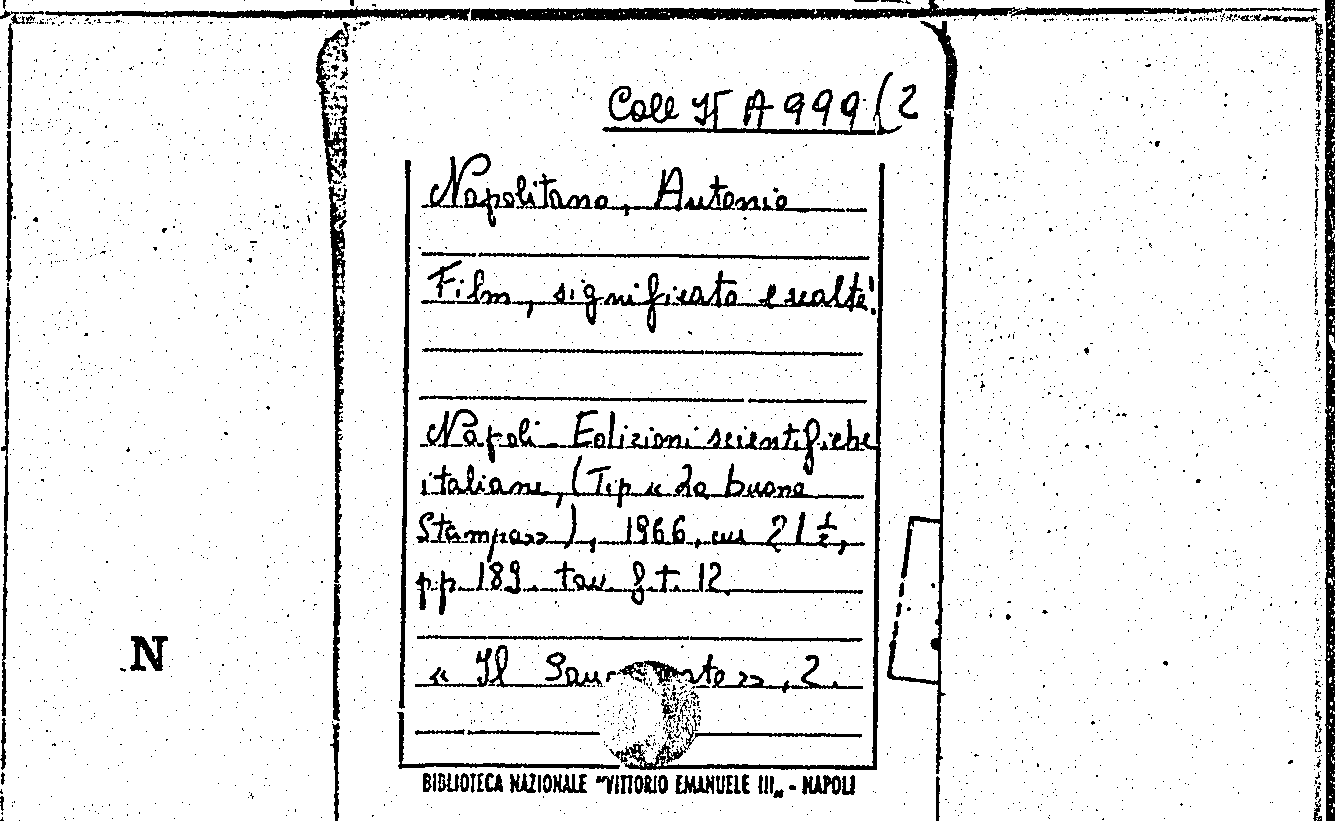 Coll It A 999 (2
Napolitano, Antonio
Film, significato e realtà!
Napoli Edizioni scientifiche
italiane, (Tip « La buona
Stampa»), 1966, in 21 ½,
pp. 189. tav. f. t. 12.
« Il , 2.
N
BIBLIOTECA NAZIONALE "VITTORIO EMANUELE III„ - NAPOLI